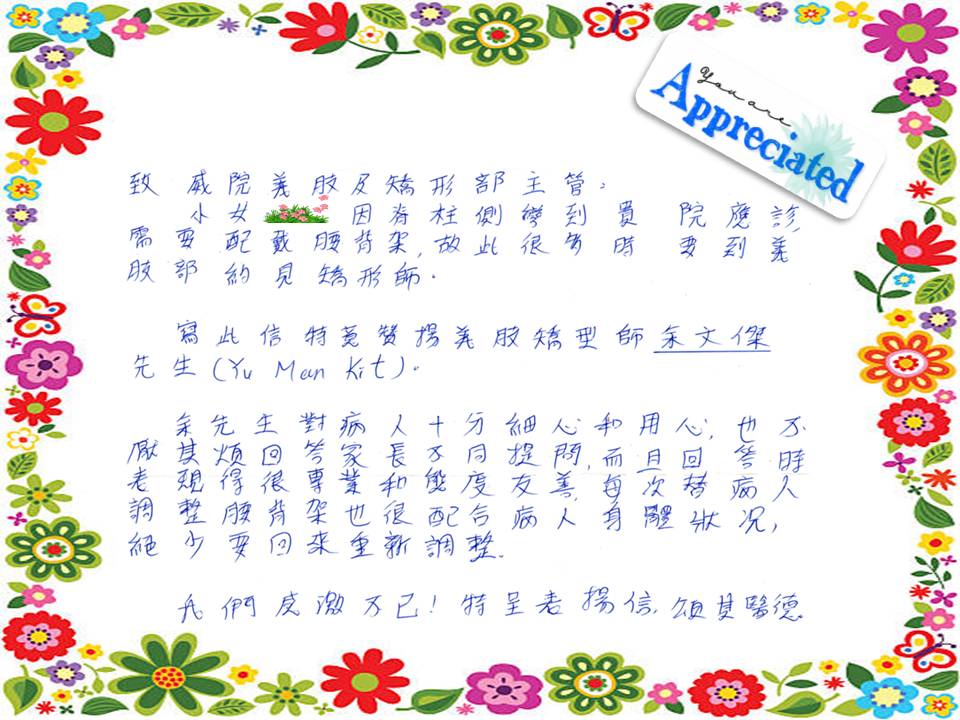 You are
Appreciated
致 威院義肢及矯形部主管：
小女 因脊柱側彎到貴院應診，
需要配戴腰背架，故此很多時要到義
肢部約見矯形師。
寫此信特意贊揚義肢矯型師余文傑
先生(Yu Man Kit)。
余先生對病人十分細心和用心，也不
厭其煩回答家長不同提問，而且回答時
表現得很專業和態度友善，每次替病人
調整腰背架也很配合病人身體狀況，
絕少要回來重新調整。
我們感激不已！特呈表揚信，頌其醫德。